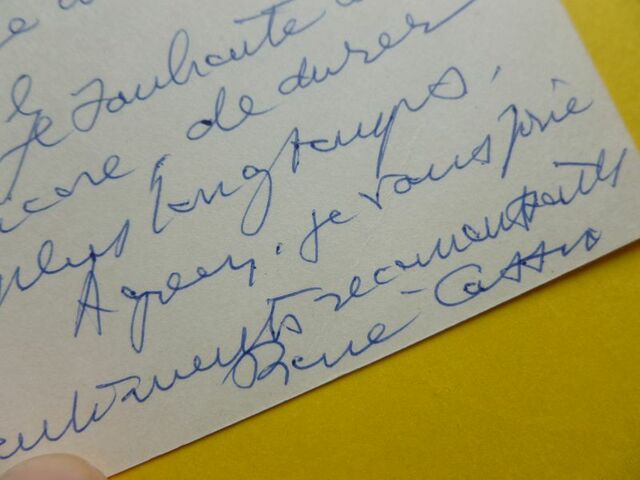 Je souhaite
encore, de durer
plus longtemps,
Agréez, je vous prie
sentiments reconnaissants
René Cassin